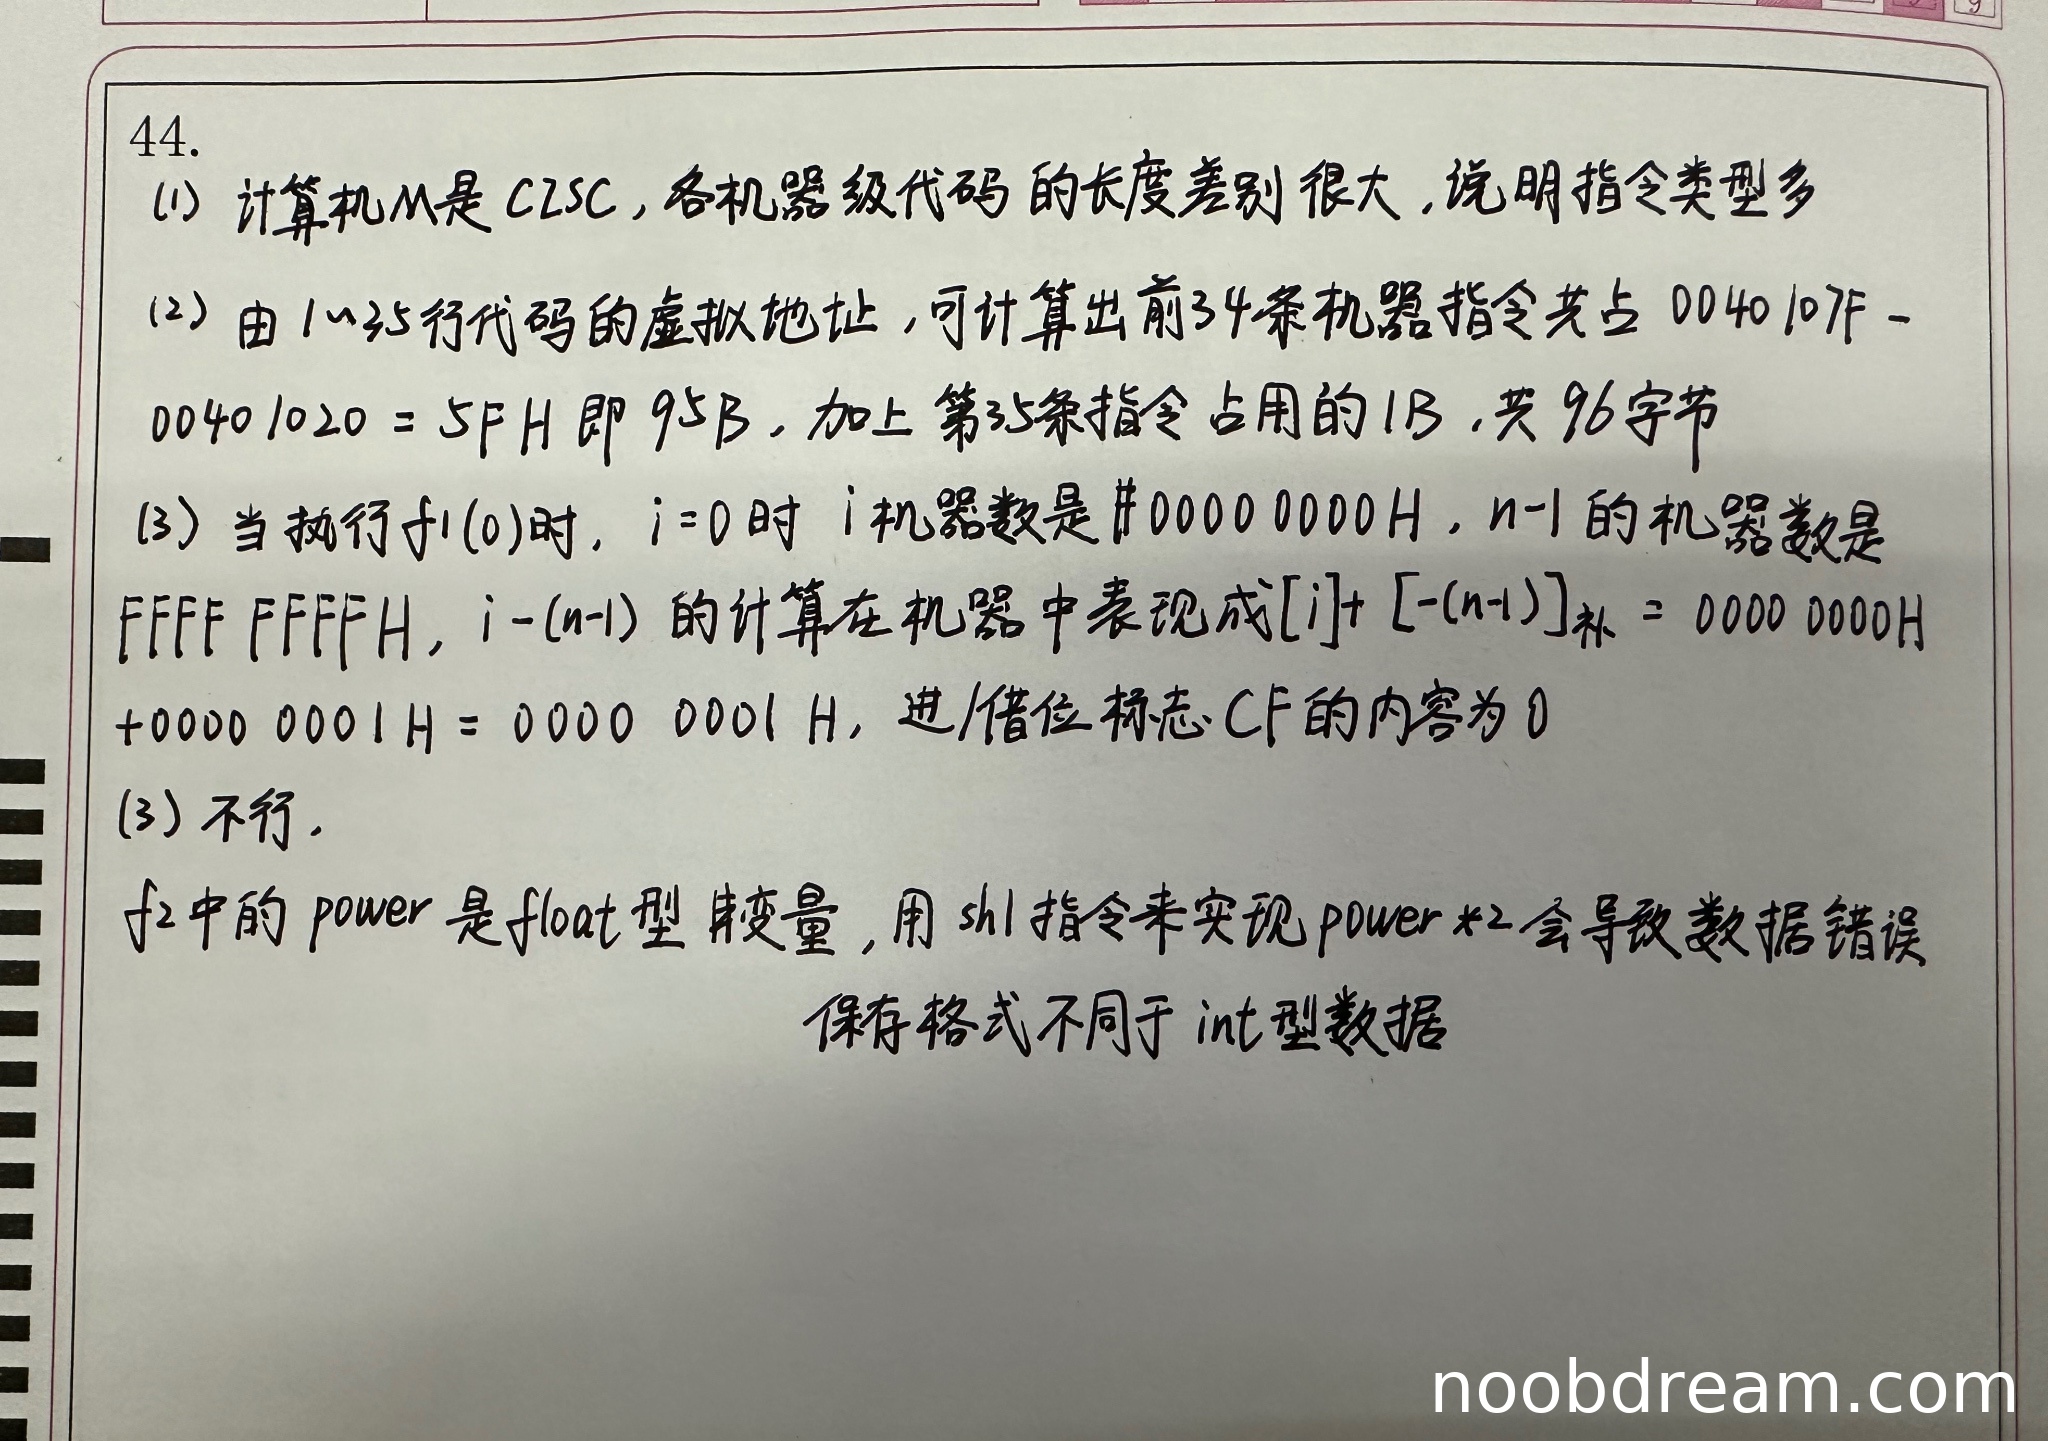 44.
(1) 计算机M是CISC,各机器级代码的长度差别很大,说明指令类型多
(2) 由1~35行代码的虚拟地址,可计算出前34条机器指令共占 0040107F -
00401020 = 5FH 即 95B,加上第35条指令占用的1B,共96字节
(3) 当执行f1(0)时, i=0时 i机器数是00000000H, n-1的机器数是
FFFF FFFFH, i-(n-1) 的计算在机器中表现成[i]+ [-(n-1)]补 = 0000 0000H
+0000 0001H = 0000 0001H, 进/借位标志CF的内容为0
(3) 不行.
f2中的 power 是float型变量,用 shl 指令来实现power*2会导致数据错误
保存格式不同于 int型数据
noobdream.com